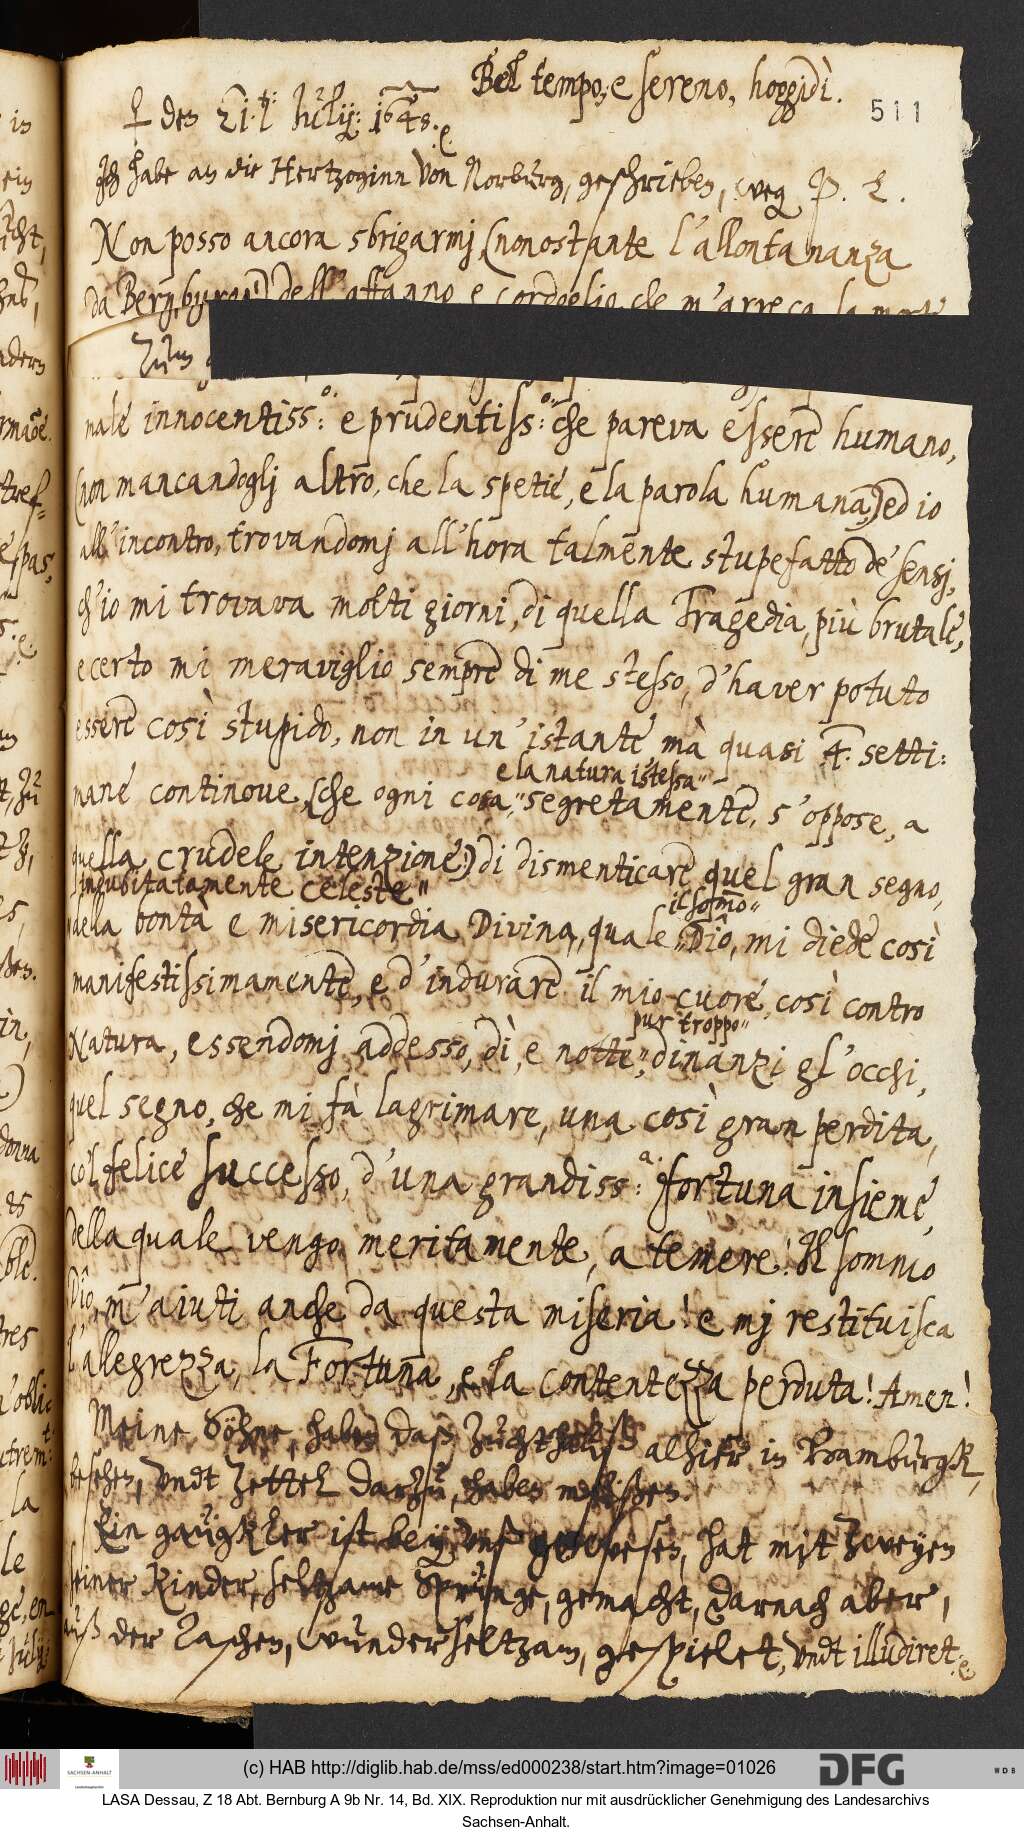 Bel tempo, e sereno, hoggidì.
511
♀ den 21. Iulij: 1648.
Ich habe an die Hertzoginn von Norburg, geschrieben, weg P. L.
Non posso ancora sbrigarmj, (nonostante l'allontananza
da Bernburgo) dell' affanno e cordoglio che m'arreca la morte
Zum
male innocentiss:o: e prudentiss:o: che pareva essere humano,
(non mancandoglj altro, che la spetie, e la parola humana,) ed io
all'incontro, trovandomj all'hora talmente stupefatto de' sensj,
ch'io mi trovava molti giorni, di quella Tragedia, più brutale,
e certo mi meraviglio sempre di me stesso, d'haver potuto
essere così stupido, non in un'istante mà quasi 4. setti:
e la natura istessa"
mane continove, (che ogni cosa," segretamente, s'oppose, a
quella crudele intenzione,) di dismenticare quel gran segno,
indubitatamente celeste"
della bontà e misericordia Divina, quale "Dio, mi diede così
il sommo"
manifestissimamente, e d'indurare il mio cuore, così contro
pur troppo"
Natura, essendomj addesso, dì, e notte," dinanzi gl'occhi,
quel segno, che mi fà lagrimare, una così gran perdita,
col felice successo, d'una grandiss:a: fortuna insieme,
della quale vengo meritamente, a temere! Il sommo
Dio, m'aiuti anche da questa miseria! e mj restituisca
l'allegrezza, la Fortuna, e la contentezza perduta! Amen!
Meine Söhne, haben daß Zuchthauß alhier in Hamburgk,
besehen, vndt Zettel darzu, haben müßen.
Ein gaugkler ist bey vnß gewesen, hat mit zweyen
seiner Kinder, seltzame Sprünge, gemacht, darnach aber,
auß der Taschen, wunderseltzam, gespielet, vndt illudiret.
(c) HAB http://diglib.hab.de/mss/ed000238/start.htm?image=01026
DFG
WDB
SACHSEN-ANHALT
LASA Dessau, Z 18 Abt. Bernburg A 9b Nr. 14, Bd. XIX. Reproduktion nur mit ausdrücklicher Genehmigung des Landesarchivs
Sachsen-Anhalt.